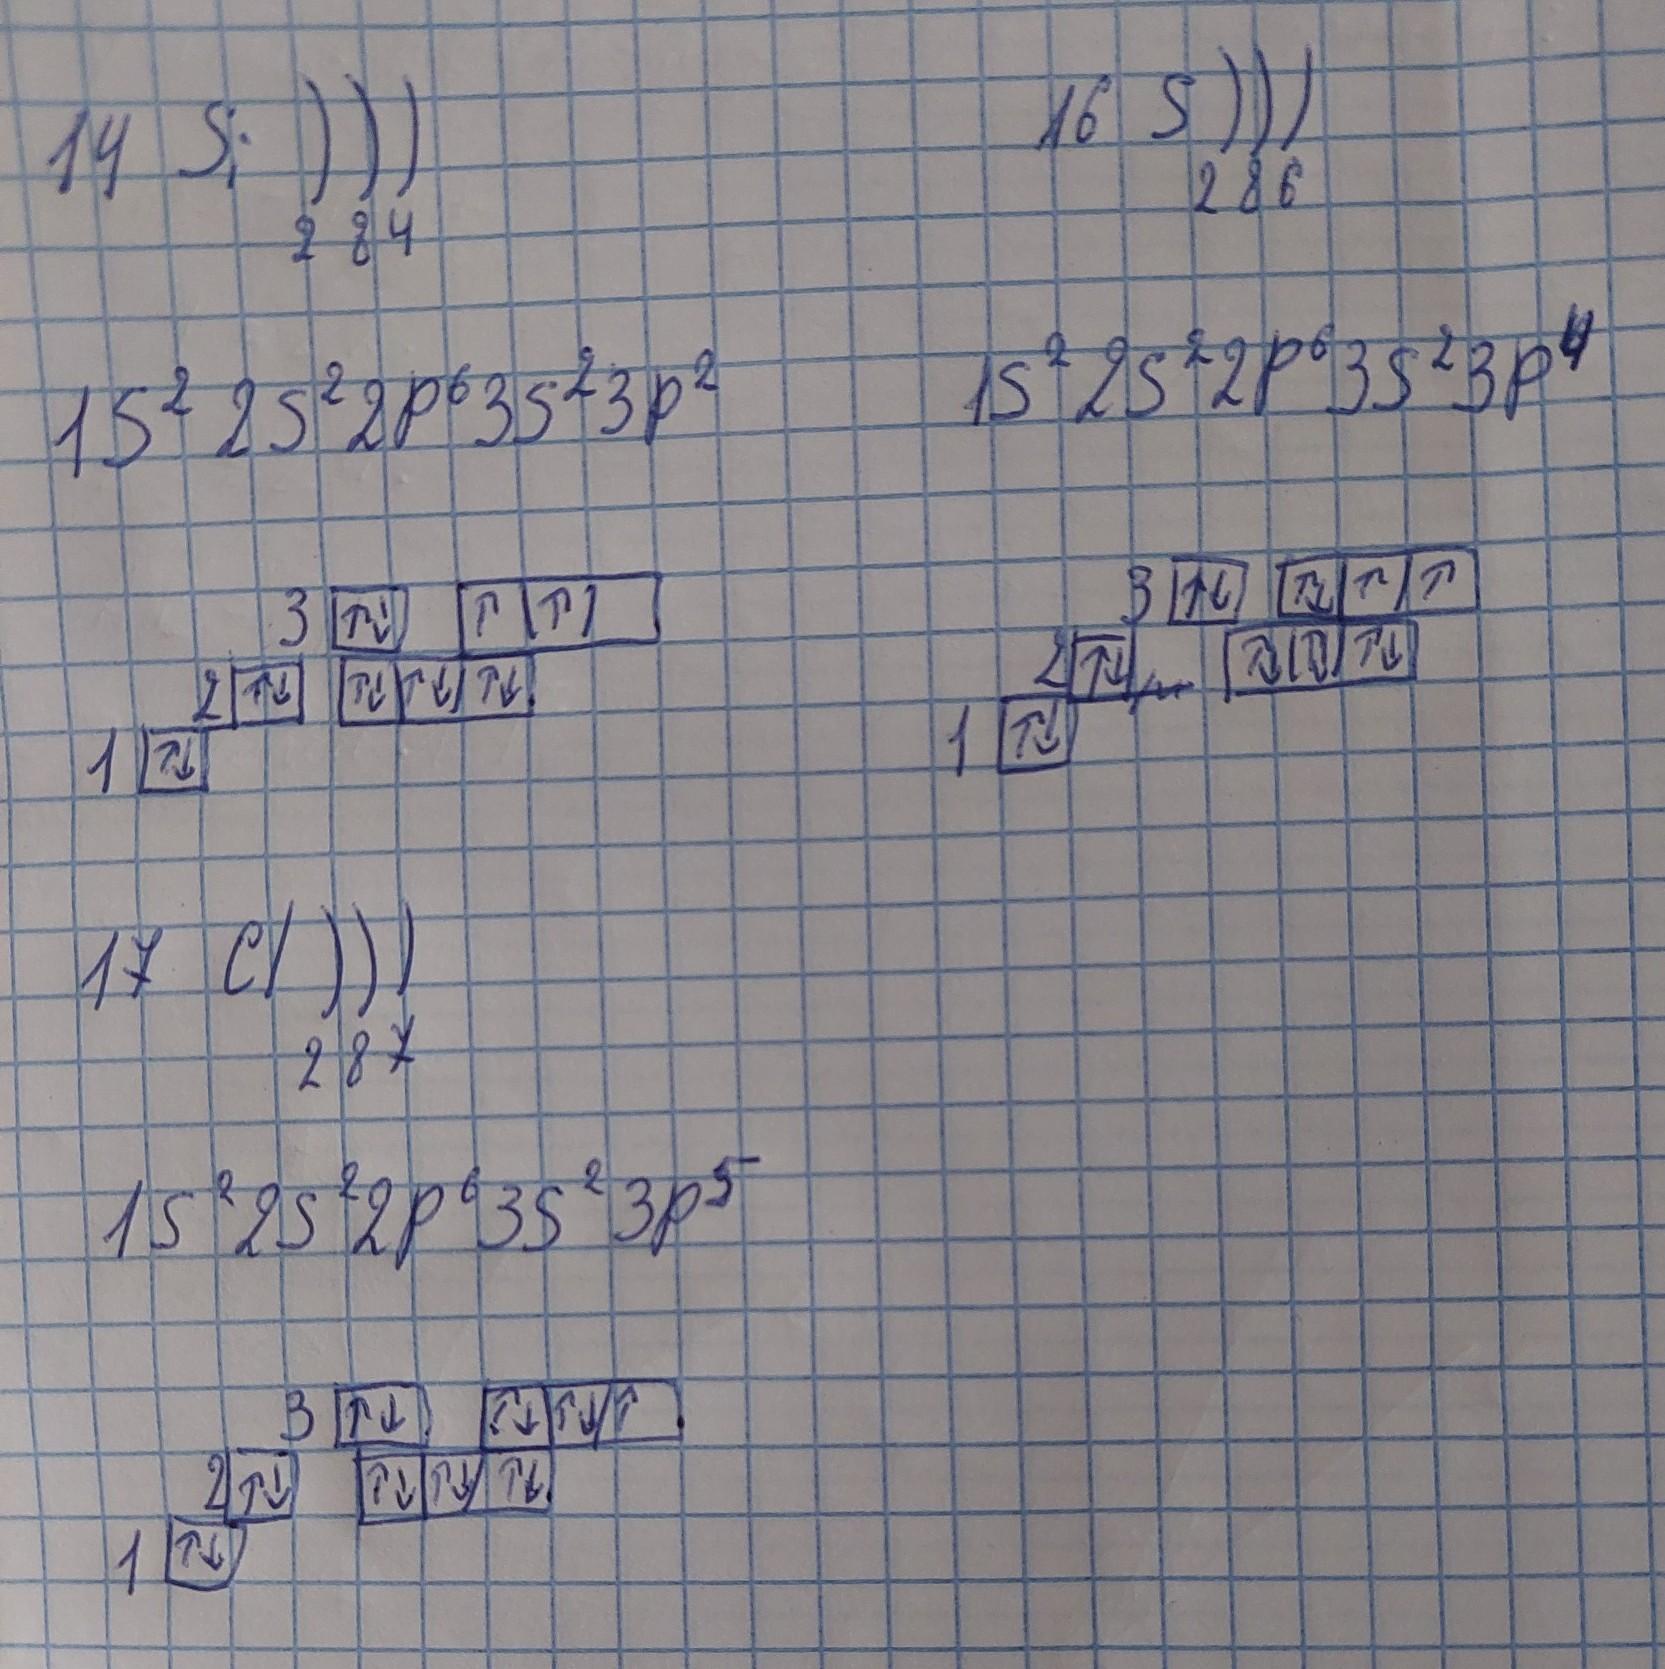 14 Si )))
2 8 4
1s² 2s² 2p⁶ 3s² 3p²
3 ↑↓ ↑ ↑
2 ↑↓ ↑↓ ↑↓ ↑↓
1 ↑↓
16 S )))
2 8 6
1s² 2s² 2p⁶ 3s² 3p⁴
3 ↑↓ ↑↓ ↑ ↑
2 ↑↓ ↑↓ ↑↓ ↑↓
1 ↑↓
17 Cl )))
2 8 7
1s² 2s² 2p⁶ 3s² 3p⁵
3 ↑↓ ↑↓ ↑↓ ↑
2 ↑↓ ↑↓ ↑↓ ↑↓
1 ↑↓